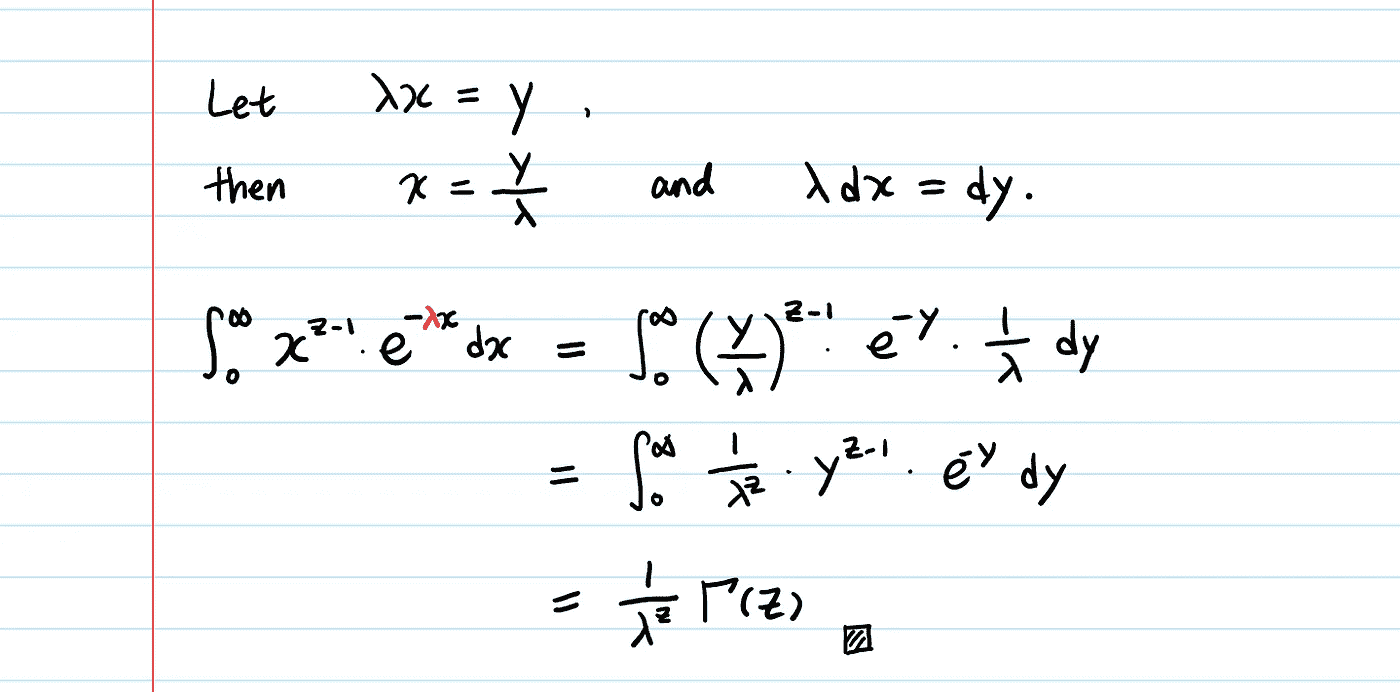 Let λx = y ,
then x = y/λ and λdx = dy.
∫₀^∞ x^(z-1) · e^(-λx) dx = ∫₀^∞ (y/λ)^(z-1) · e^(-y) · 1/λ dy
= ∫₀^∞ 1/λ^z · y^(z-1) · e^(-y) dy
= 1/λ^z Γ(z)